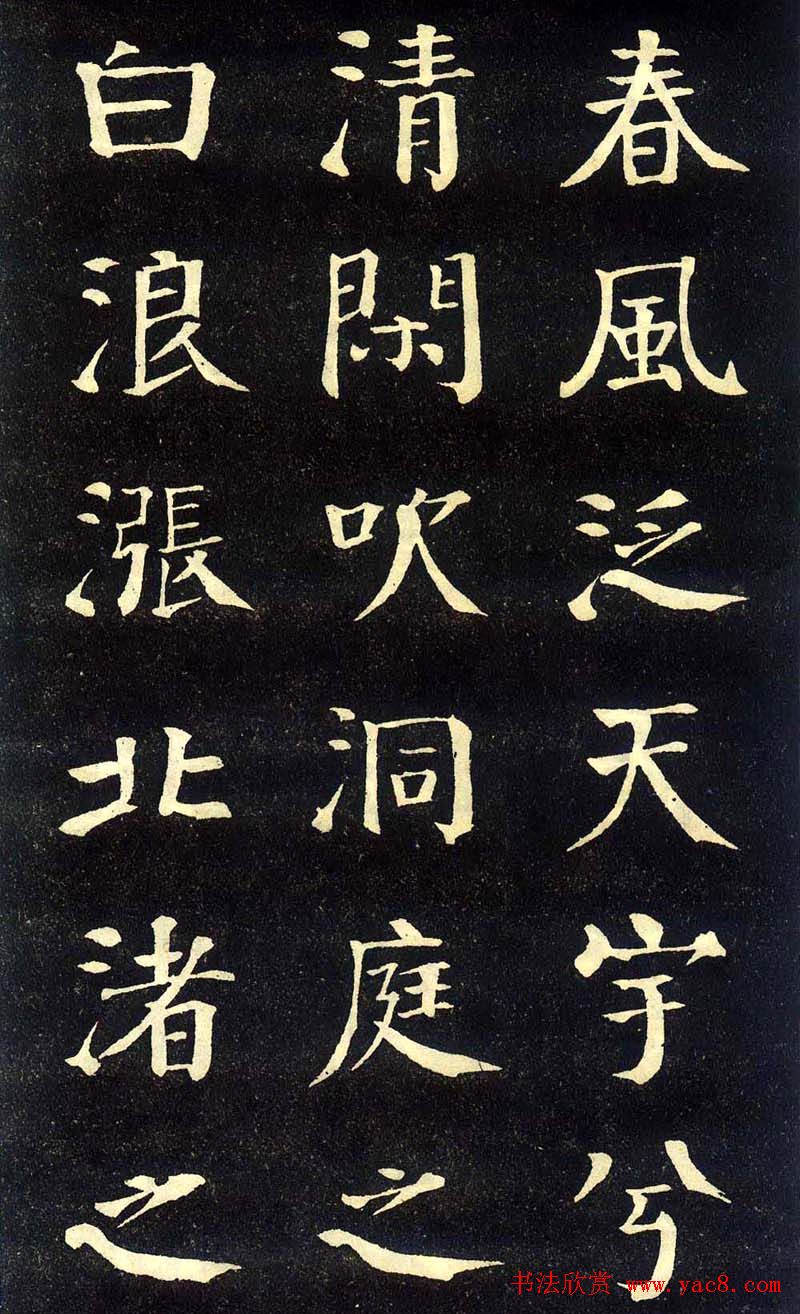 春風泛天宇兮
清閑吹洞庭之
白浪漲北渚之
书法欣赏 www.yac8.com